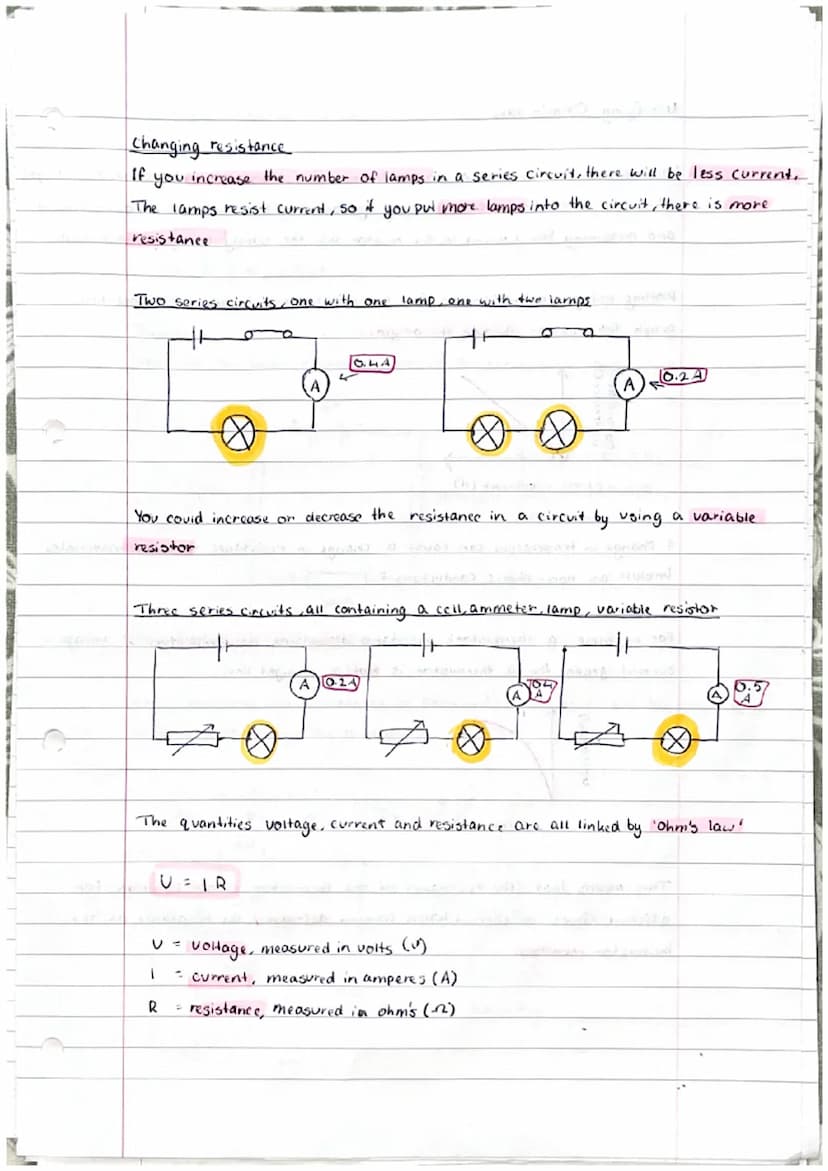 Changing resistance
If you increase the number of lamps in a series circuit, there will be less current.
The lamps resist current, so if you put more lamps into the circuit, there is more
resistance
Two series circuits, one with one lamp, one with two lamps
0.4A
A
0.2A
A
You could increase or decrease the resistance in a circuit by using a variable
resistor
Three series circuits, all containing a cell, ammeter, lamp, variable resistor
A 0.2A
A 0.4 A
A 0.5 A
The quantities voltage, current and resistance are all linked by 'Ohm's law'
V = IR
V = voltage, measured in volts (V)
I = current, measured in amperes (A)
R = resistance, measured in ohm's (Ω)